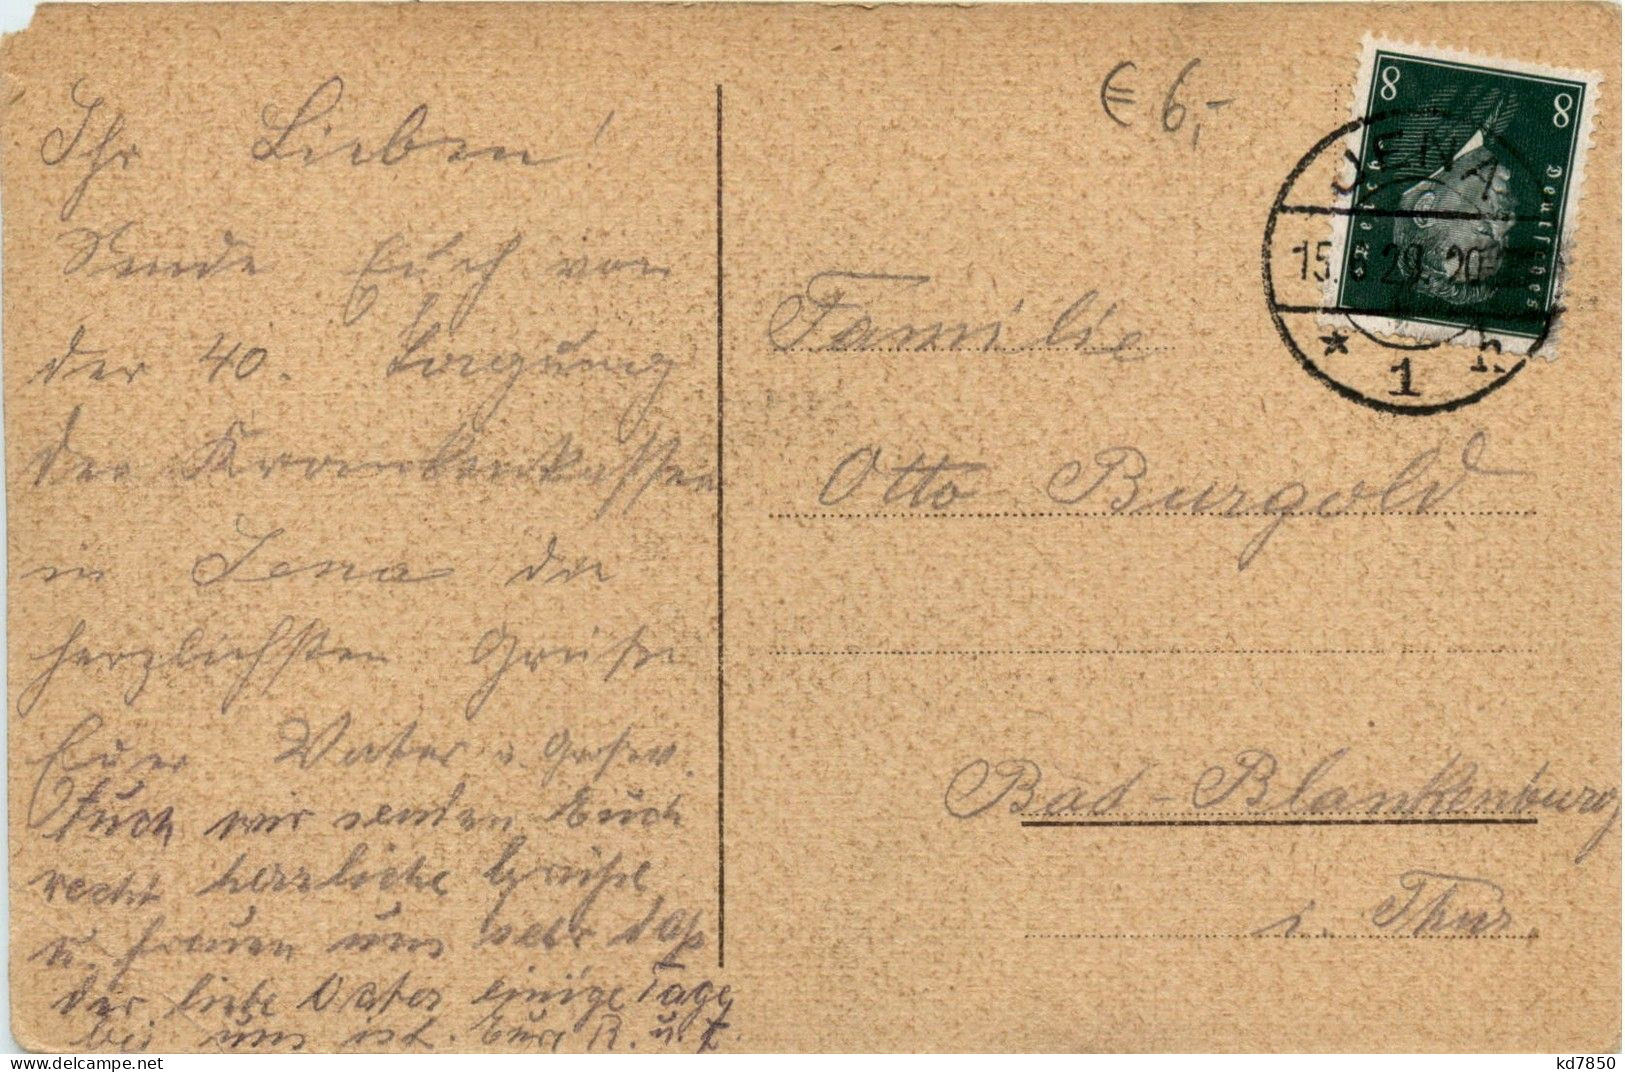 Ihr Lieben!
Sende Euch von
der 40. Tagung
der Krankenkassen
in Jena die
herzlichsten Grüße
Euer Vater u.
Auch wir senden Euch
recht herzliche Grüße
u. freuen uns sehr daß
der liebe Vater einige Tage
bei uns ist. Eure R. u. L.
€ 6,-
8 8
Deutsches Reich
JENA
15.6.29. 20-
* 1 h
Familie
Otto Burgold
Bad-Blankenburg
i. Thür.
kd7850